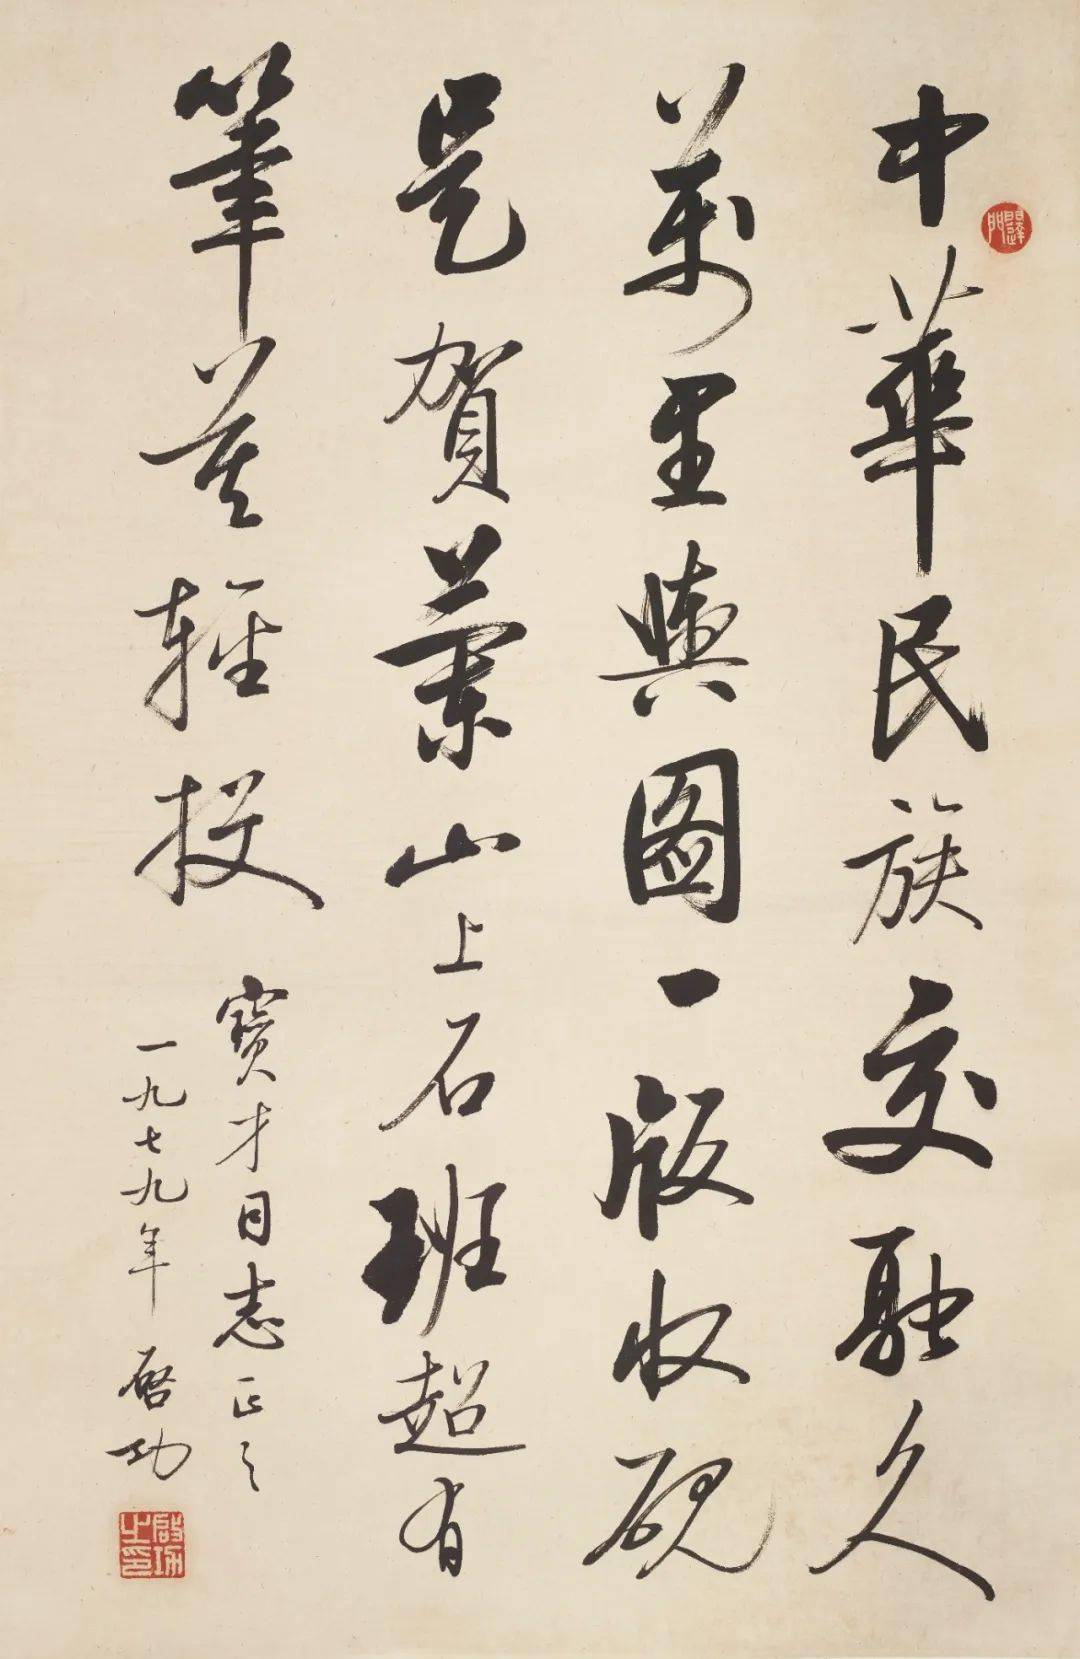 中華民族交融久
萬里輿圖一版收硯
是賀蘭山上石班超有
筆莫輕投
寶才同志正之
一九七九年 啓功
啓功之印